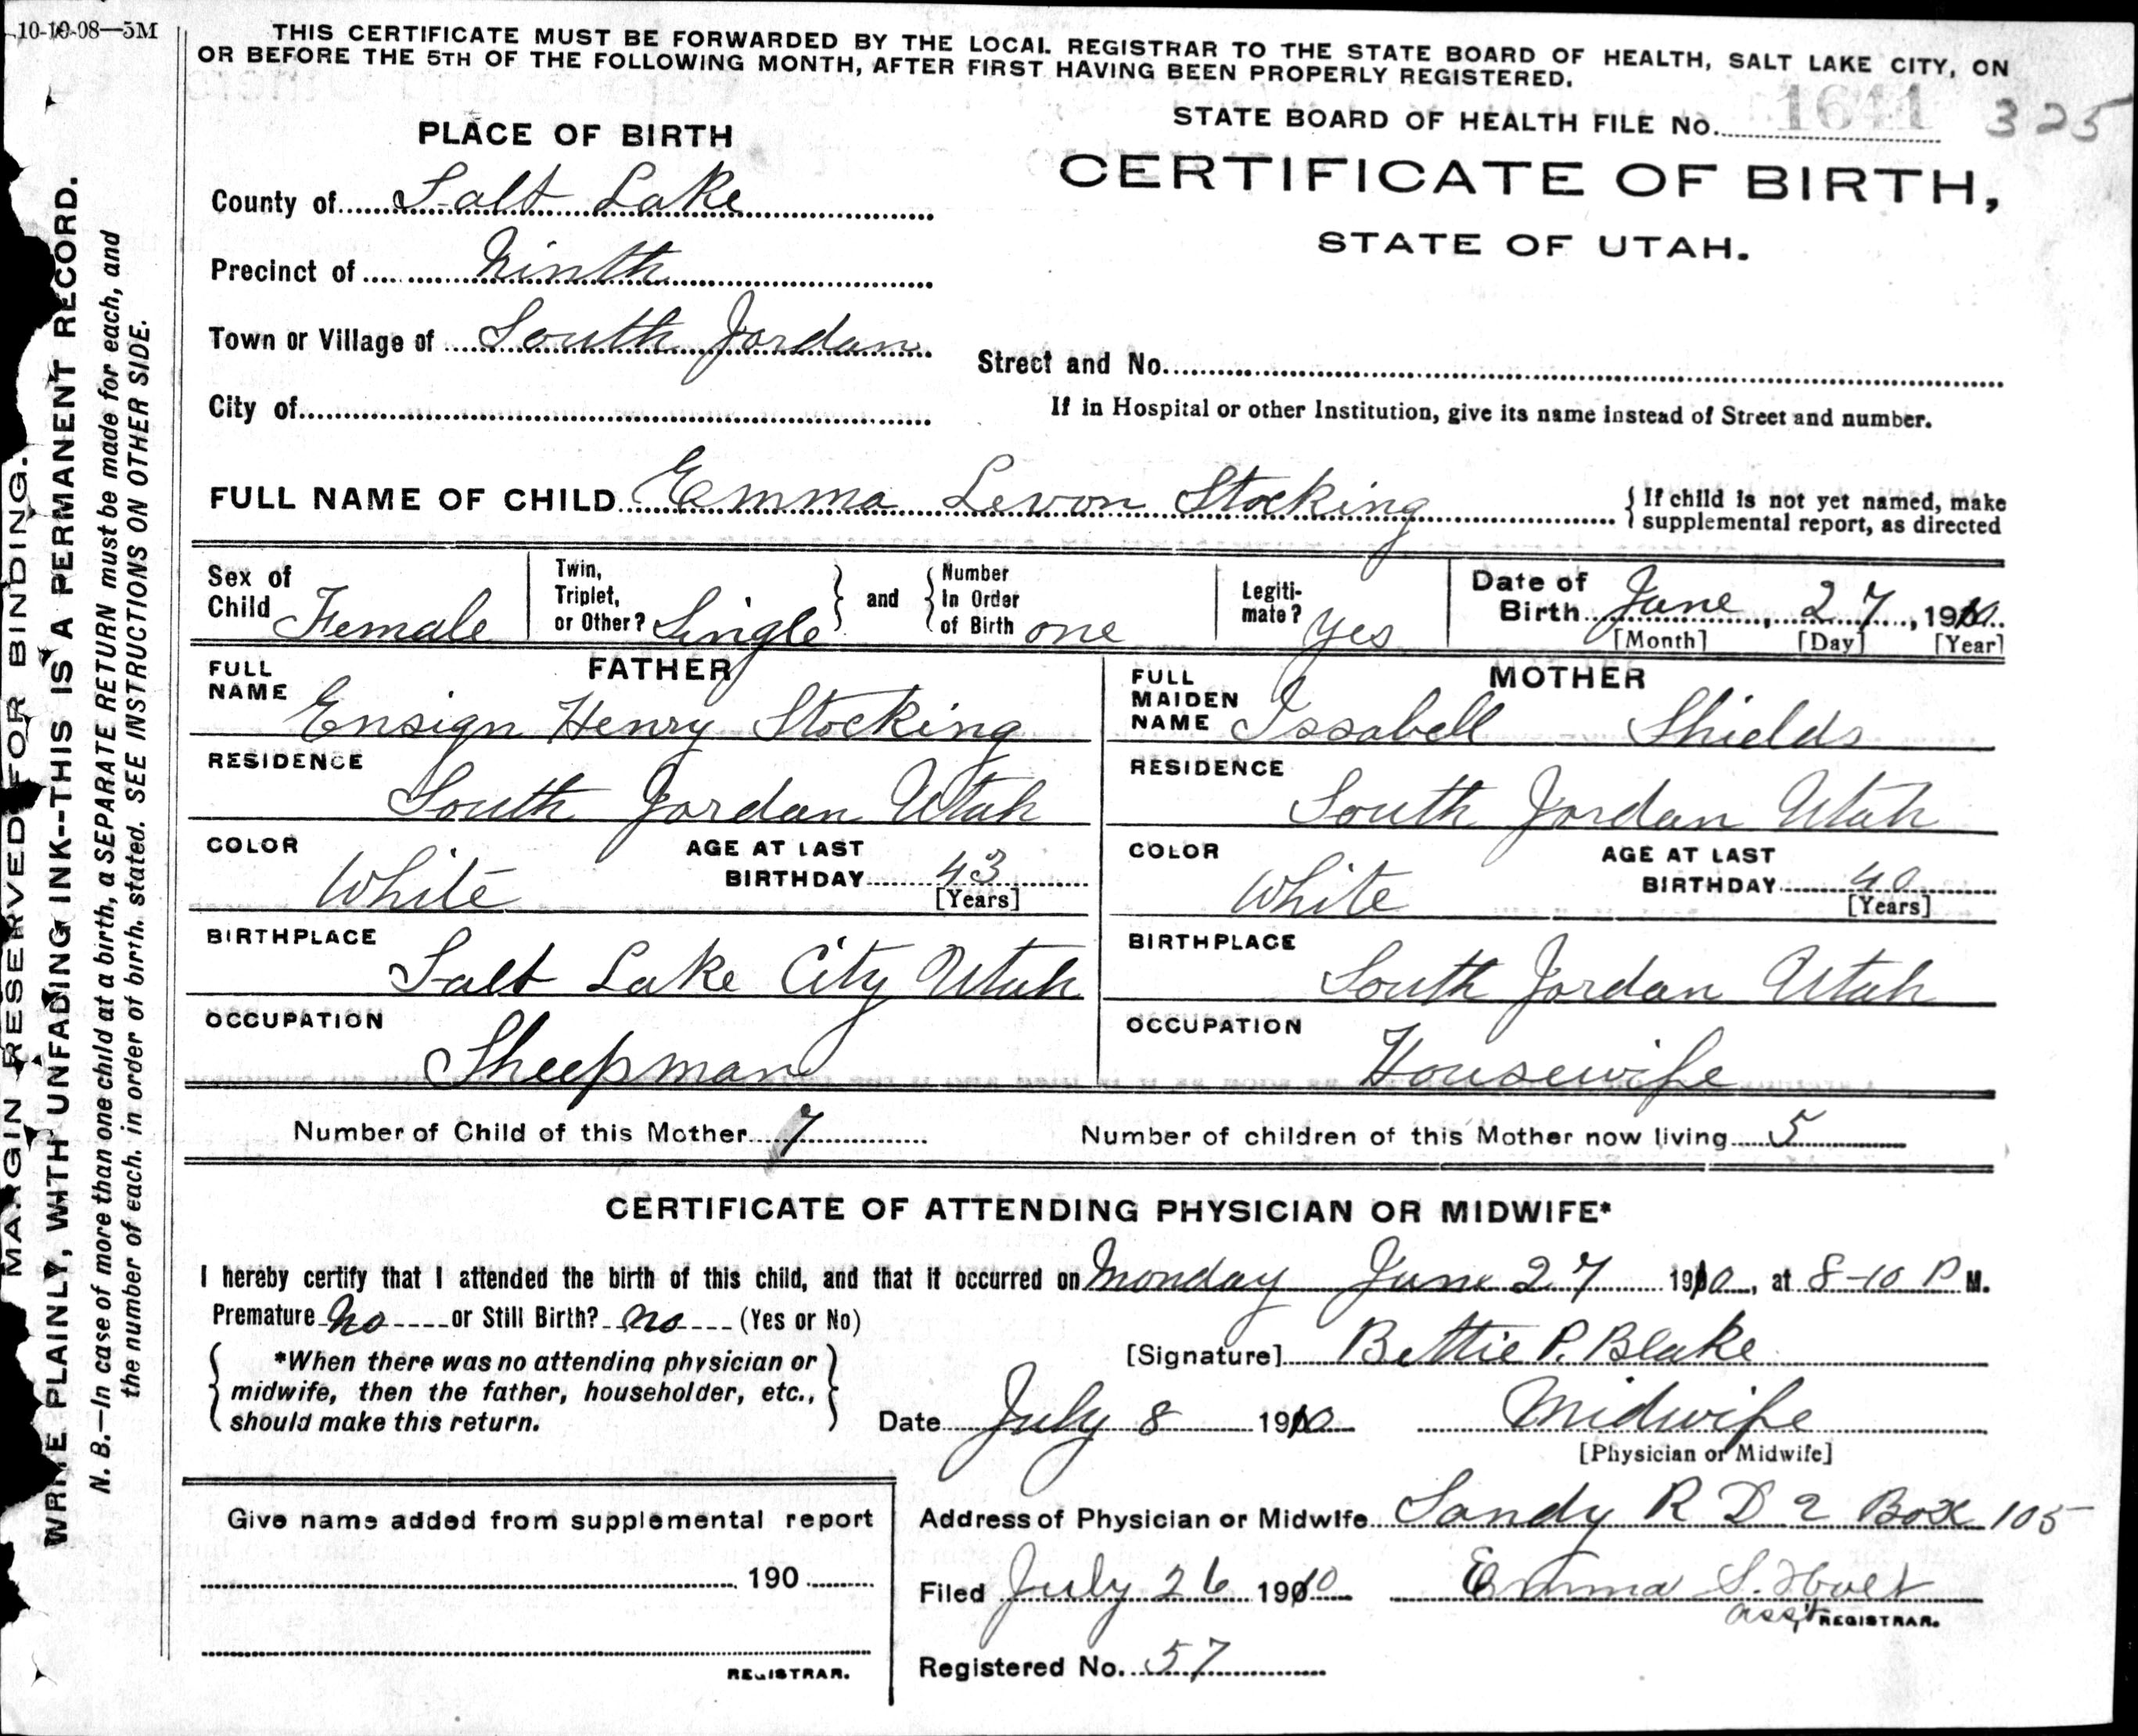 10-10-08—5M
THIS CERTIFICATE MUST BE FORWARDED BY THE LOCAL REGISTRAR TO THE STATE BOARD OF HEALTH, SALT LAKE CITY, ON
OR BEFORE THE 5TH OF THE FOLLOWING MONTH, AFTER FIRST HAVING BEEN PROPERLY REGISTERED.
STATE BOARD OF HEALTH FILE No. 1641 325
CERTIFICATE OF BIRTH,
STATE OF UTAH.
PLACE OF BIRTH
County of Salt Lake
Precinct of Ninth
Town or Village of South Jordan
City of
Street and No.
If in Hospital or other Institution, give its name instead of Street and number.
FULL NAME OF CHILD Emma Levon Stocking
If child is not yet named, make
supplemental report, as directed
Sex of
Child Female
Twin,
Triplet,
or Other? Single
and
Number
In Order
of Birth one
Legiti-
mate? yes
Date of
Birth June, 27, 1910
[Month] [Day] [Year]
FATHER
FULL
NAME Ensign Henry Stocking
RESIDENCE
South Jordan Utah
COLOR
White
AGE AT LAST
BIRTHDAY 43
[Years]
BIRTHPLACE
Salt Lake City Utah
OCCUPATION
Sheepman
MOTHER
FULL
MAIDEN
NAME Issabell Shields
RESIDENCE
South Jordan Utah
COLOR
White
AGE AT LAST
BIRTHDAY 40
[Years]
BIRTHPLACE
South Jordan Utah
OCCUPATION
Housewife
Number of Child of this Mother 7
Number of children of this Mother now living 5
CERTIFICATE OF ATTENDING PHYSICIAN OR MIDWIFE*
I hereby certify that I attended the birth of this child, and that it occurred on Monday June 27 1910, at 8-10 P M.
Premature no or Still Birth? no (Yes or No)
*When there was no attending physician or
midwife, then the father, householder, etc.,
should make this return.
[Signature] Bettie P. Blake
Date July 8 1910 Midwife
[Physician or Midwife]
Give name added from supplemental report
190
REGISTRAR.
Address of Physician or Midwife Sandy R D 2 Box 105
Filed July 26 1910 Emma S.
asst REGISTRAR.
Registered No. 57
MARGIN RESERVED FOR BINDING.
WRITE PLAINLY, WITH UNFADING INK--THIS IS A PERMANENT RECORD.
N. B.—In case of more than one child at a birth, a SEPARATE RETURN must be made for each, and
the number of each, in order of birth, stated. SEE INSTRUCTIONS ON OTHER SIDE.